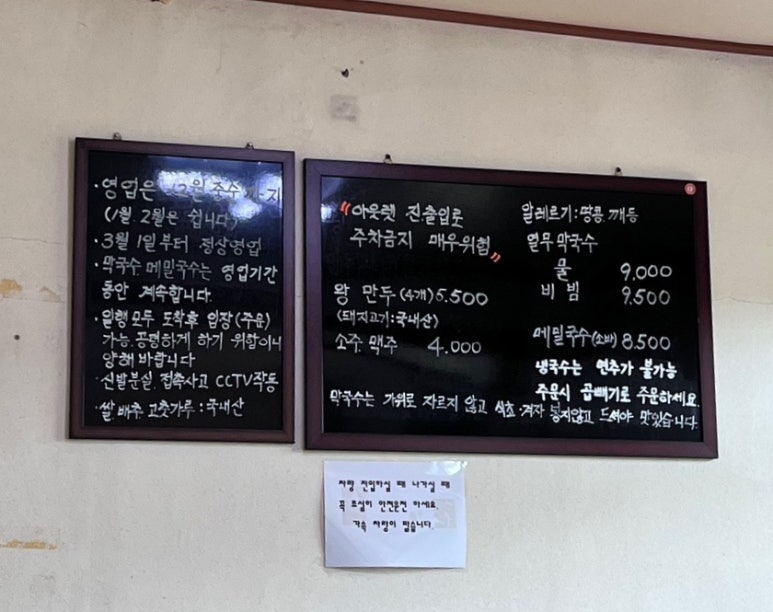 ·영업은 12월 중순까지
(1월. 2월은 쉽니다)
·3월 1일부터 정상영업
·막국수 메밀국수는 영업기간
동안 계속합니다.
·일행모두 도착후 입장(주문)
가능. 공평하게 하기 위함이니
양해 바랍니다
·신발분실. 접속사고 CCTV작동
·쌀. 배추. 고춧가루 : 국내산
"아웃렛 진.출입로
주차금지 매우위험"
왕 만두 (4개) 6.500
(돼지고기:국내산)
소주. 맥주 4.000
알레르기 : 땅콩. 깨등
열무 막국수
물 9,000
비빔 9,500
메밀국수(소바) 8.500
냉국수는 면추가 불가능
주문시 곱빼기로 주문하세요.
막국수는 가위로 자르지 않고 식초.겨자 넣지않고 드셔야 맛있습니다.
차량 진입하실 때 나가실 때
꼭 조심히 안전운전 하세요.
가속 차량이 많습니다.